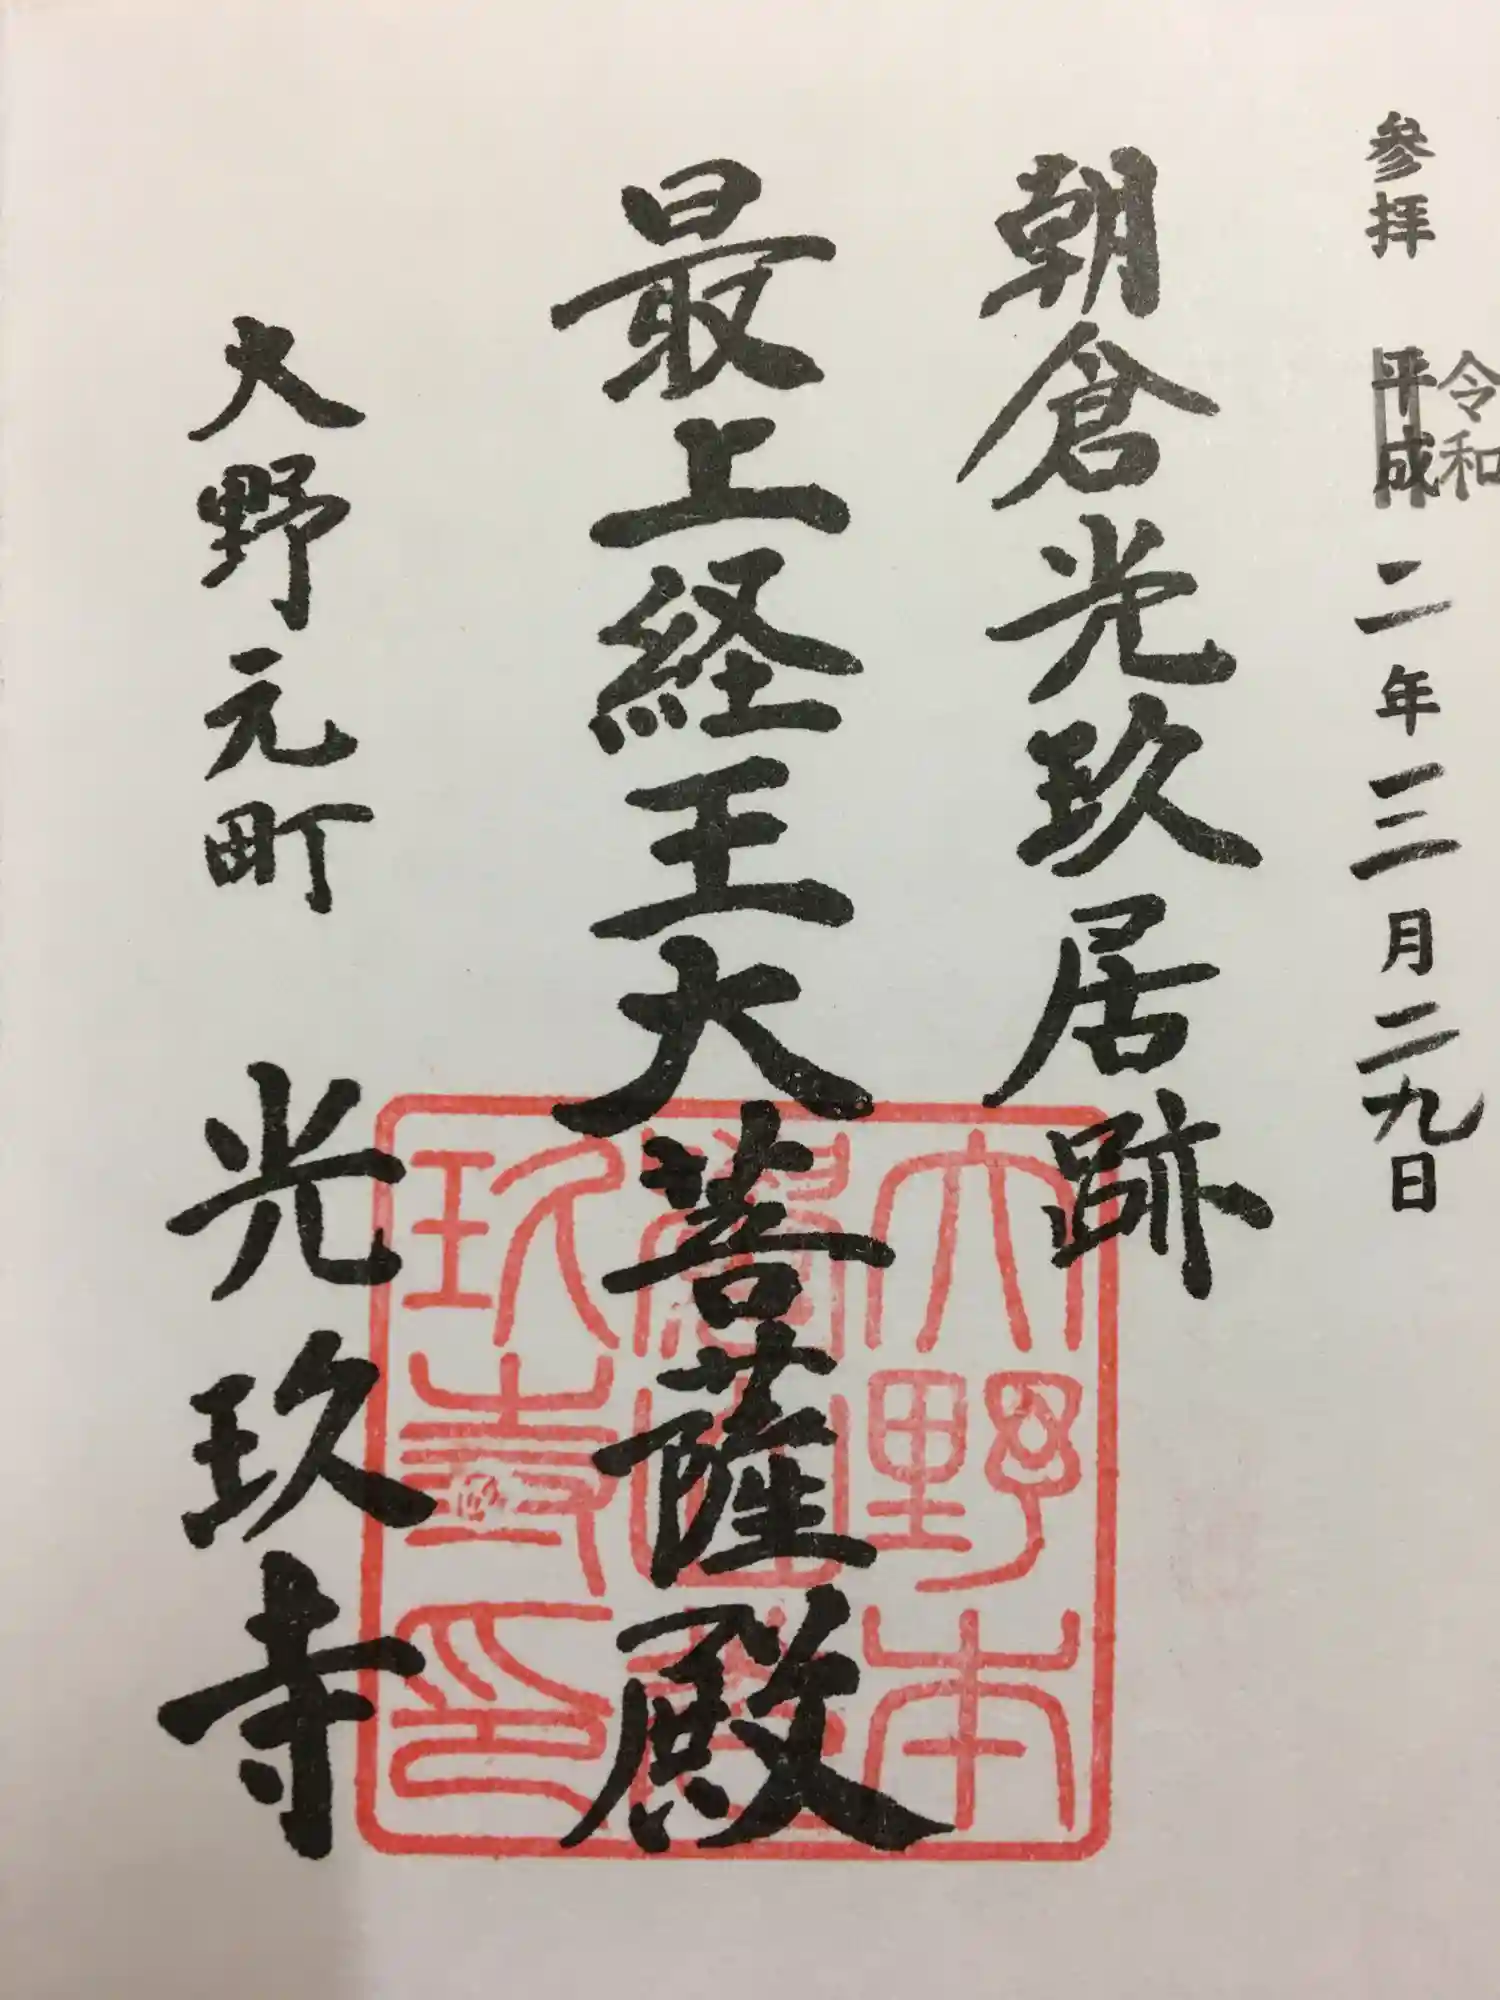 参拝 平成 二年三月二九日
令和
朝倉光玖居跡
最上経王大菩薩殿
大野元町 光玖寺
大野本
玖寺印